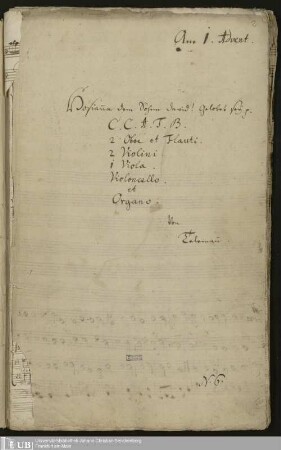 Am 1. Advent.
Hosianna dem Sohne David! Gelobet sey p.
C. C. A. T. B.
2 Oboe et Flauti.
2 Violini
1 Viola.
Violoncello.
et
Organo.
Von
Telemann
N 6.
UB
Universitätsbibliothek Johann Christian Senckenberg
Frankfurt am Main